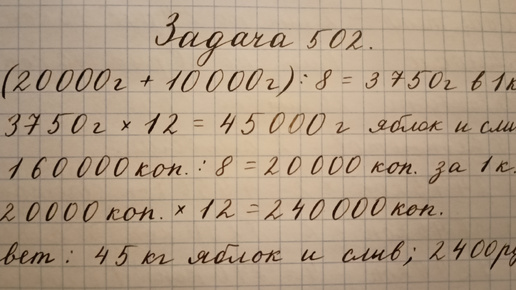 Задача 502.
(20000г + 10000г) : 8 = 3750г в 1к
3750г × 12 = 45000 г яблок и сли
160000коп. : 8 = 20000 коп. за 1к.
20000коп. × 12 = 240000коп.
вет : 45 кг яблок и слив; 2400ру